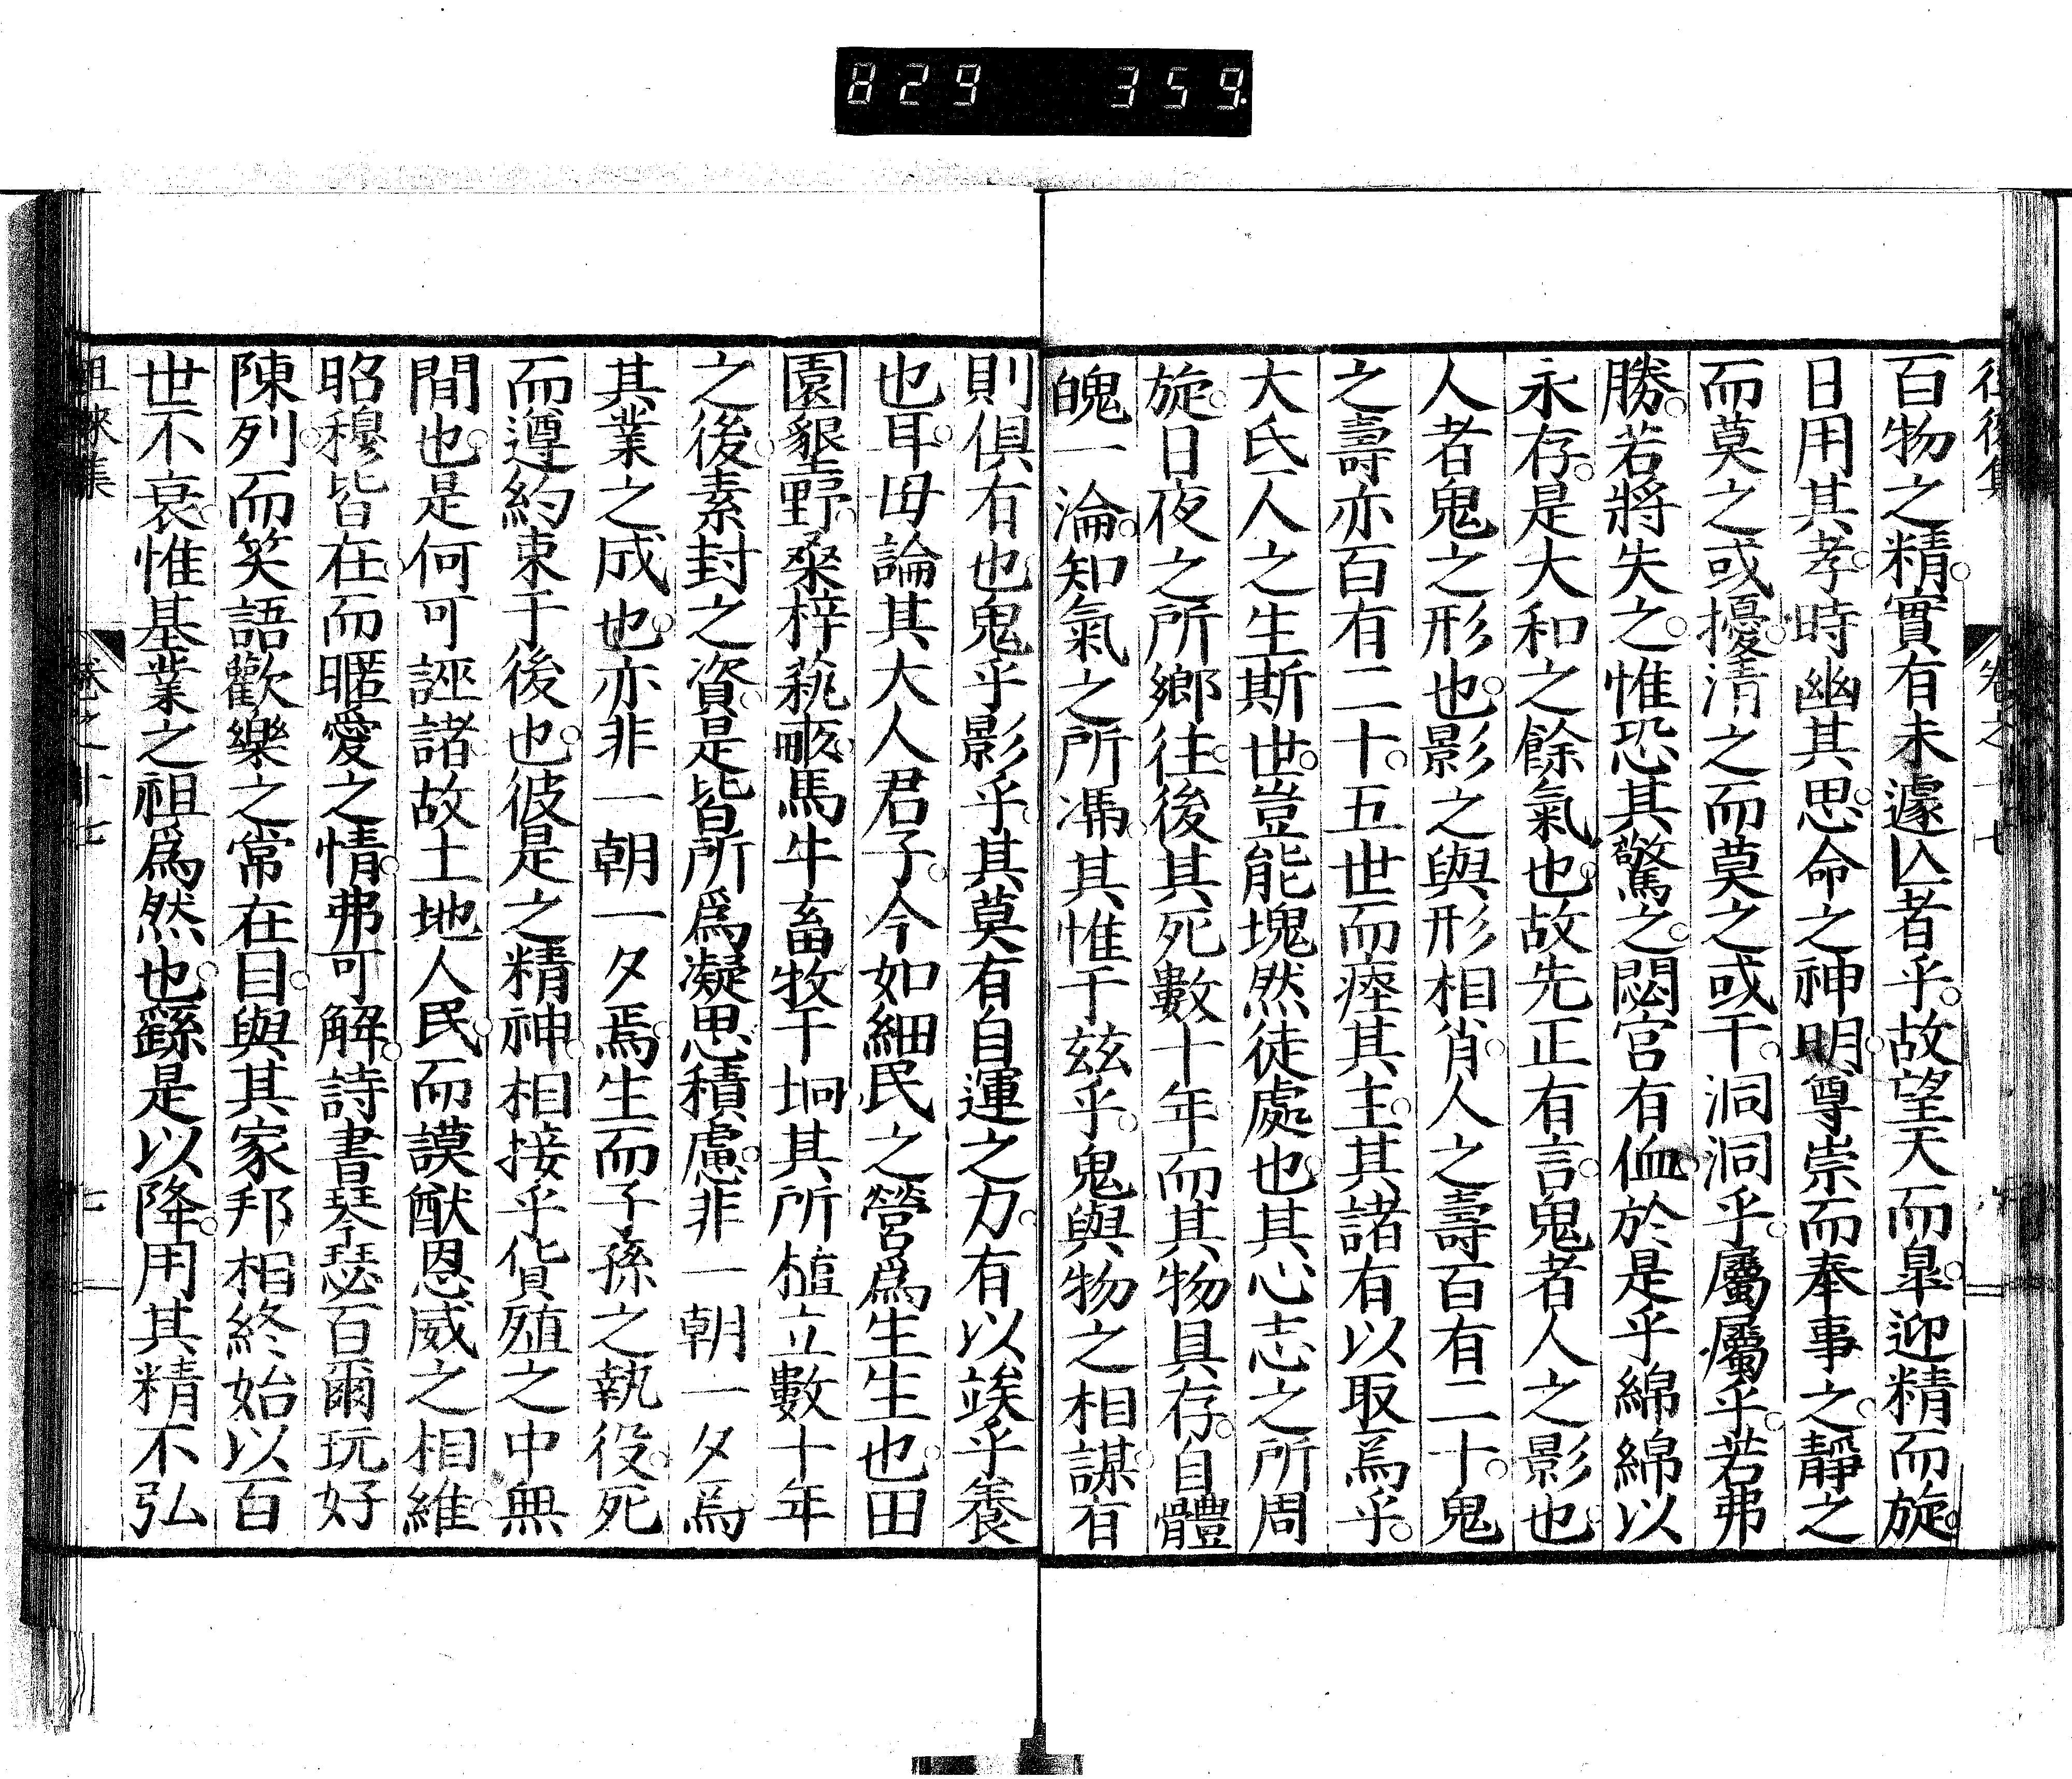 829 359
百物之精實有未遽亾者乎故望天而皐迎精而旋
日用其孝時幽其思命之神明尊崇而奉事之靜之
而莫之或擾清之而莫之或干洞洞乎屬屬乎若弗
勝若將失之惟恐其驚之閟宮有侐於是乎綿綿以
永存是大和之餘氣也故先正有言鬼者人之影也
人者鬼之形也影之與形相肖人之壽百有二十鬼
之壽亦百有二十五世而瘞其主其諸有以取焉乎
大氏人之生斯世豈能塊然徒處也其心志之所周
旋日夜之所鄉往後其死數十年而其物具存自體
魄一淪知氣之所馮其惟于玆乎鬼與物之相謀有
則俱有也鬼乎影乎其莫有自運之力有以竢乎養
也耳毋論其大人君子今如細民之營爲生生也田
園墾野桑梓蓺畞馬牛畜牧于坰其所植立數十年
之後素封之資是皆所爲凝思積慮非一朝一夕焉
其業之成也亦非一朝一夕焉生而子孫之執役死
而遵約束于後也彼是之精神相接乎貨殖之中無
間也是何可誣諸故土地人民而謨猷恩威之相維
昭穆皆在而暱愛之情弗可解詩書琴瑟百爾玩好
陳列而笑語歡樂之常在目與其家邦相終始以百
世不衰惟基業之祖爲然也繇是以降用其精不弘
徂徠集 卷之十七 七